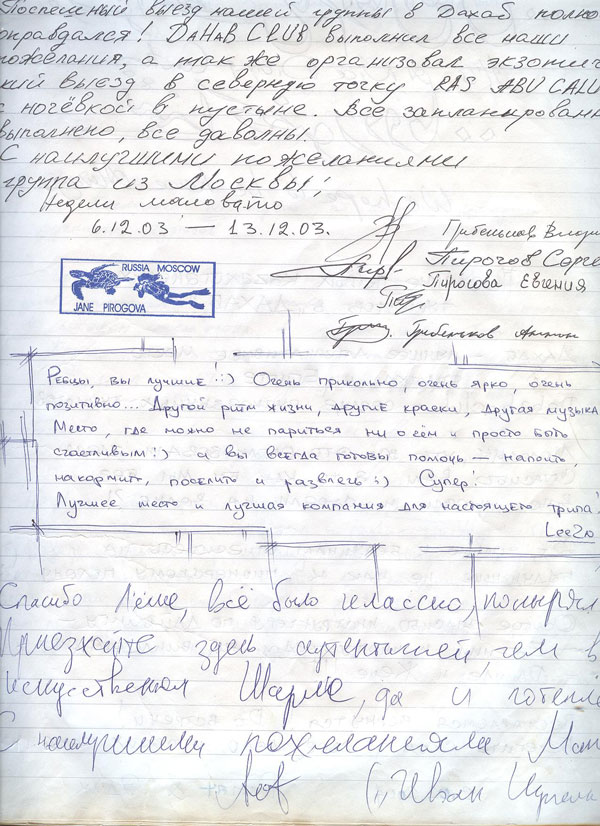 Поспешный выезд нашей группы в Дахаб полно
оправдался! DAHAB CLUB выполнил все наши
пожелания, а так же организовал экзотич
кий выезд в северную точку RAS ABU GALU
с ночёвкой в пустыне. Все запланирован
выполнено, все даволны.
С наилучшими пожеланиями
группа из Москвы!
Недели маловато
6.12.03 — 13.12.03.
Гребеньков
Пирогов Серге
Пирогова Евгения
Гребеньков
RUSSIA MOSCOW
JANE PIROGOVA
Ребцы, вы лучшие!:) Очень прикольно, очень ярко, очень
позитивно... Другой ритм жизни, другие краски, другая музыка
Место, где можно не париться ни о чём и просто быть
счастливым!:) и вы всегда готовы помочь — напоить,
накормить, поселить и развлечь:) Супер!
Лучшее место и лучшая компания для настоящего трипа!
Спасибо Лёше, всё было классно, понырял
Приезжайте здесь аутентичней, чем в
искусственном Шарме, да и теплее
С наилучшими пожеланиями
Иван